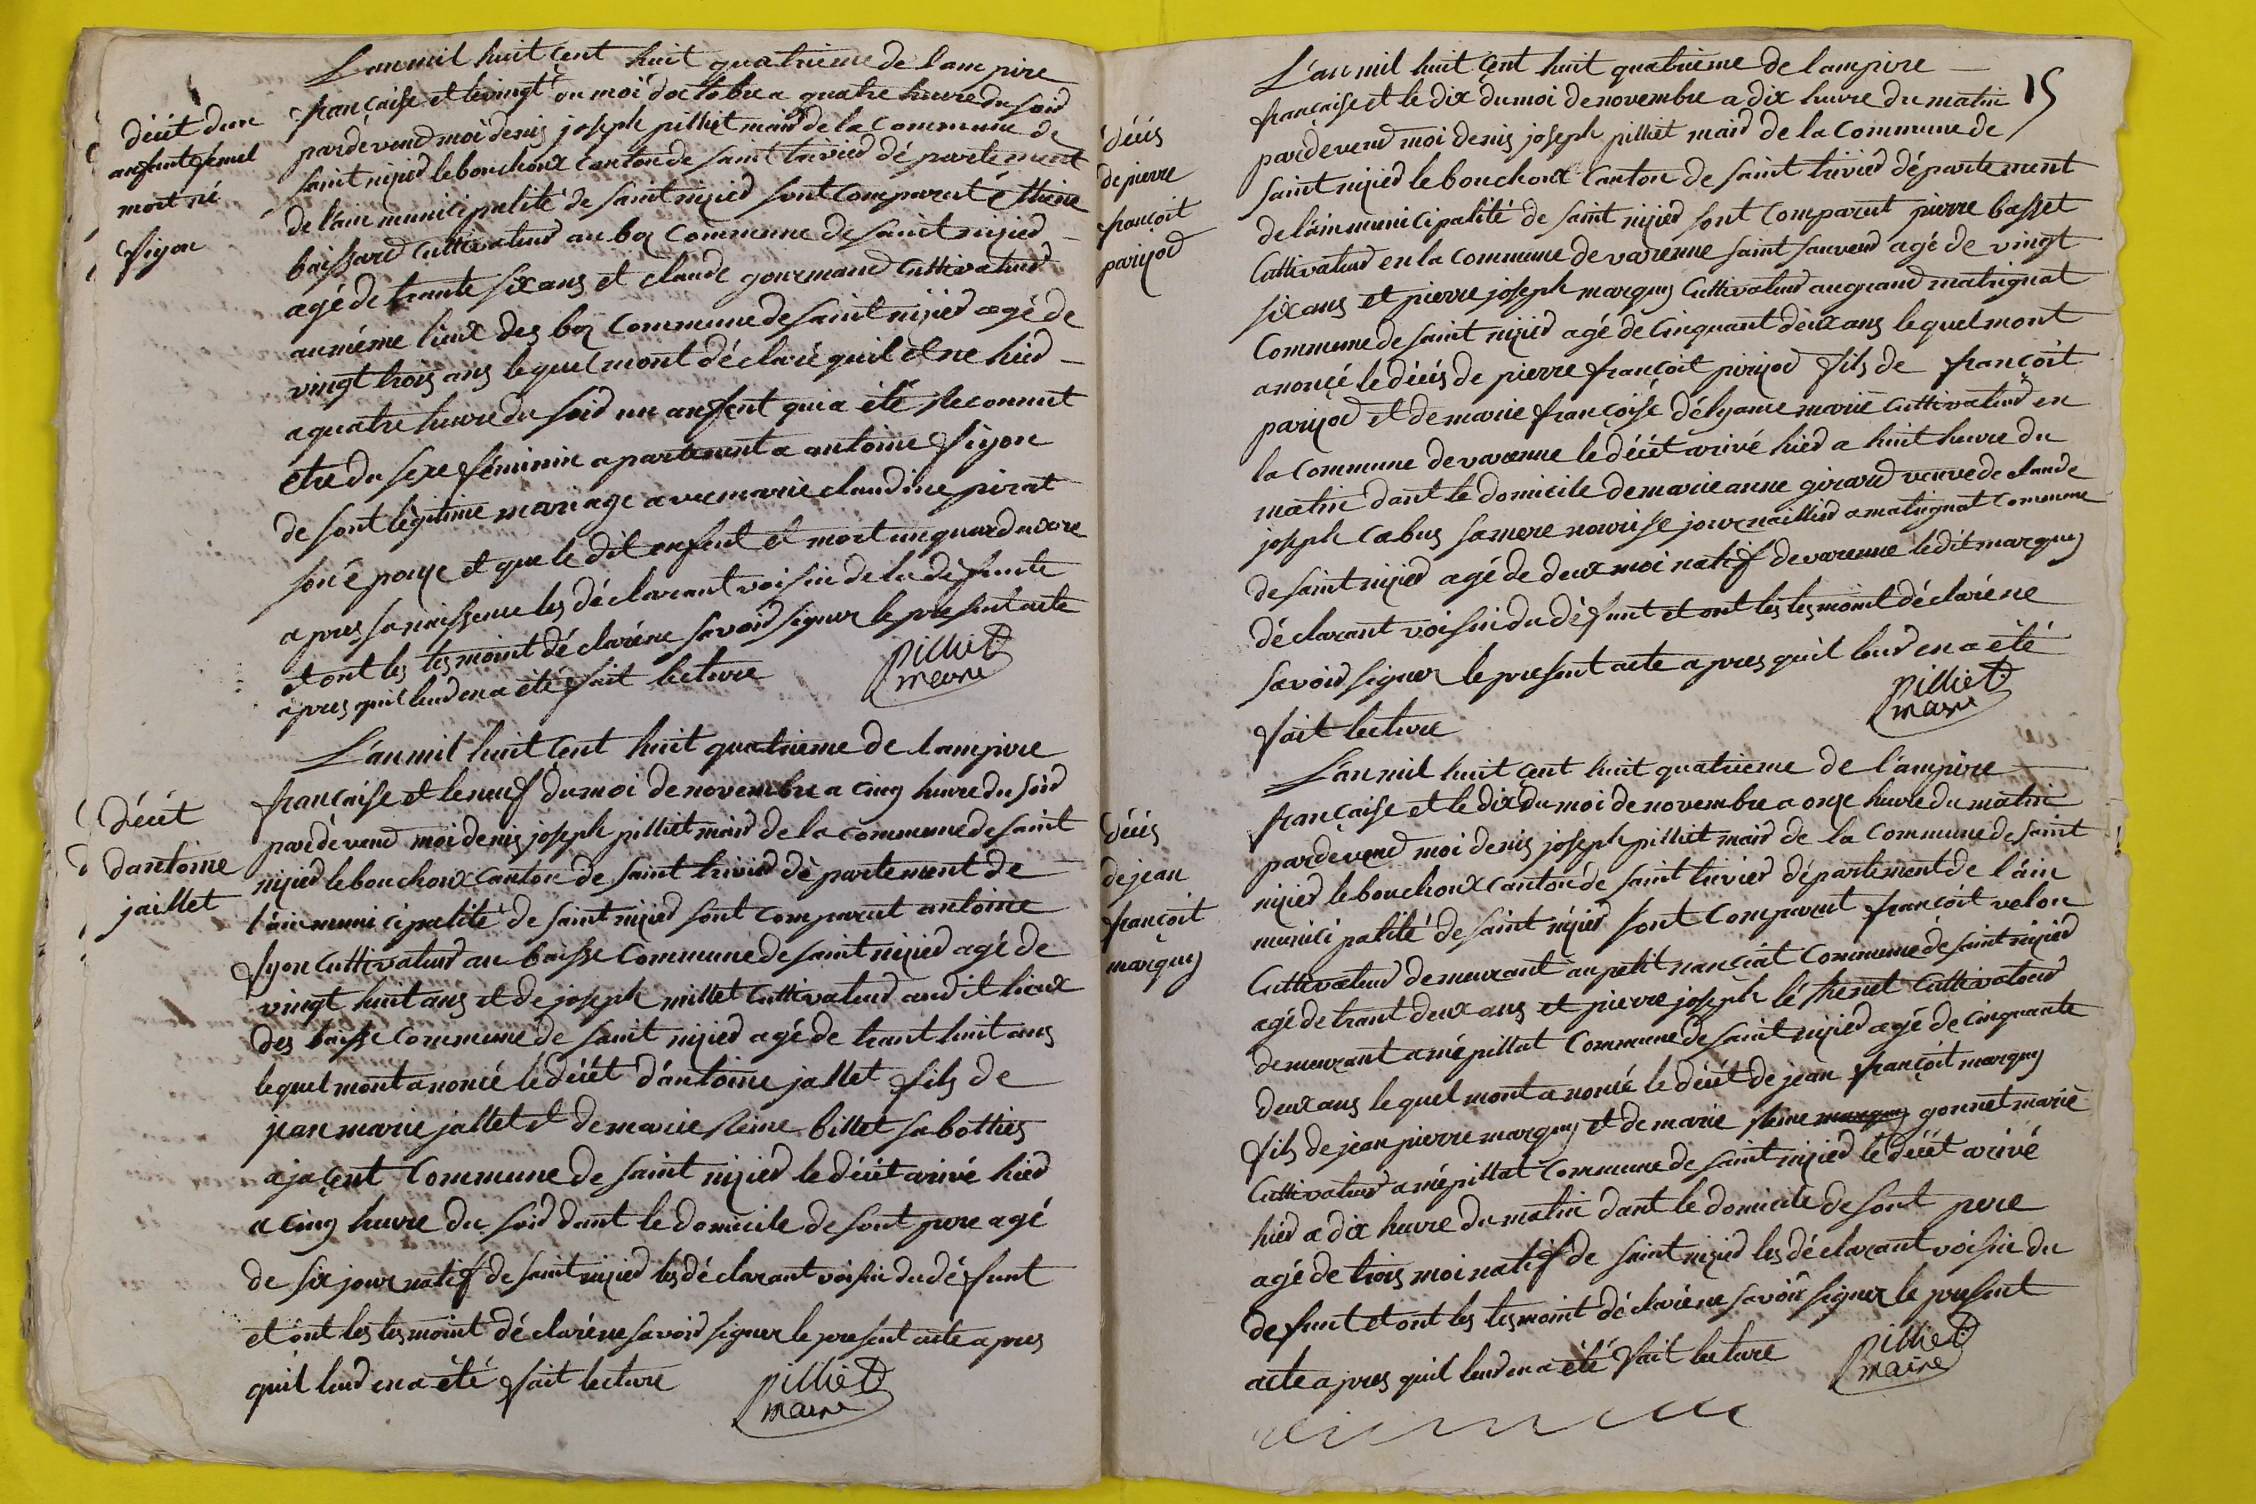 décét dun
anfant femel
mort né
figon
L'an mil huit cent huit quatrieme de lampire
française et le vingt un moi doctobre a quatre heure du soir
pardevend moi denis joseph pilliet maire de la Commune de
saint nizied le bouchoux canton de saint trivied département
de l'ain municipalité de saint nizied sont comparut éttiene
baissard Cultivateur au boz Commune de saint nizied
agé de trante six ans et claude gourmand Cultivateur
au méme lieux des boz Commune de saint nizied agé de
vingt trois ans lequel mont déclaré quil et ne hied
a quatre heure du soid un anfent qui a été Reconnut
etre du sexe féminin apartenent a antoine figon
de sont légitime mariage avec marie claudine pirat
son épouze et que le dit enfent et mort un quard deure
apres sa naissence les déclarant voisin de la defunte
et ont les tesmoint déclaréne savoid signer le present acte
apres quil leud en a été fait lecture
pilliet
maire
décét
d'antoine
jaillet
L'an mil huit cent huit quatrieme de lampire
francaise et le neuf du moi de novembre a cinq heure du soid
pardevend moi denis joseph pilliet maire de la commune de saint
nizied le bouchoux canton de saint trivied département de
l'ain municipalité de saint nizied sont comparut antoine
fyon Cultivateur au baisse Commune de saint nizied agé de
vingt huit ans et de joseph millet Cultivateur audit lieux
des baisse Commune de saint nizied agé de trant huit ans
lequel mont anoncé le décét d'antoine jallet fils de
jean marie jallet et de marie Reine billet sabotties
ajacent Commune de saint nizied le décét arivé hied
a cinq heure du soid dant le domicile de sont pere agé
de six jour natif de saint nizied les déclarant voisin du défunt
et ont les tesmoint déclaréne savoid signer le present acte apres
quil leud en a été fait lecture
pilliet
maire
15
décés
de pierre
françoit
parizod
L'an mil huit cent huit quatrieme de lampire
francaise et le dix du moi de novembre a dix heure du matin
pardevend moi denis joseph pilliet maire de la Commune de
saint nizied le bouchoux Canton de saint trivied département
de l'ain municipalité de saint nizied sont comparut pierre basset
Cultivateur en la commune de varenne saint sauveud agé de vingt
six ans et pierre joseph marquy Cultivateur au grand matrignat
Commune de saint nizied agé de cinquant deux ans lequel mont
anoncé le décés de pierre françoit pirizod fils de françoit
parizod et de marie françoise délyame marie Cultivateur en
la commune de varenne le décét arivé hied a huit heure du
matin dant le domicile de marie anne girard veuve de claude
joseph Cabus sa mere nourise journaillied a matrignat commune
de saint nizied agé de deux moi natif de varenne ledit marquy
déclarant voisin du défunt et ont les tesmoint déclaréne
savoid signer le present acte apres quil leud en a été
fait lecture
pilliet
maire
décés
de jean
françoit
marquy
L'an mil huit cent huit quatrieme de l'ampire
francaise et le dix du moi de novembre a onze heure du matin
pardevend moi denis joseph pilliet maire de la Commune de saint
nizied le bouchoux canton de saint trivied département de l'ain
municipalité de saint nizied sont comparut françoit velon
Cultivateur demeurant au petit nanciat Commune de saint nizied
agé de trant deux ans et pierre joseph léthenet Cultivateur
demeurant a mépillat Commune de saint nizied agé de cinquante
deux ans lequel mont anoncé le décét de jean françoit marquy
fils de jean pierre marquy et de marie Reine marquy gonnet marie
Cultivateur a mépillat Commune de saint nizied le décét arivé
hied a dix heure du matin dant le domicile de sont pere
agé de trois moi natif de saint nizied les déclarant voisin du
defunt et ont les tesmoint déclaréne savoir signer le present
acte apres quil leud en a été fait lecture
pilliet
maire